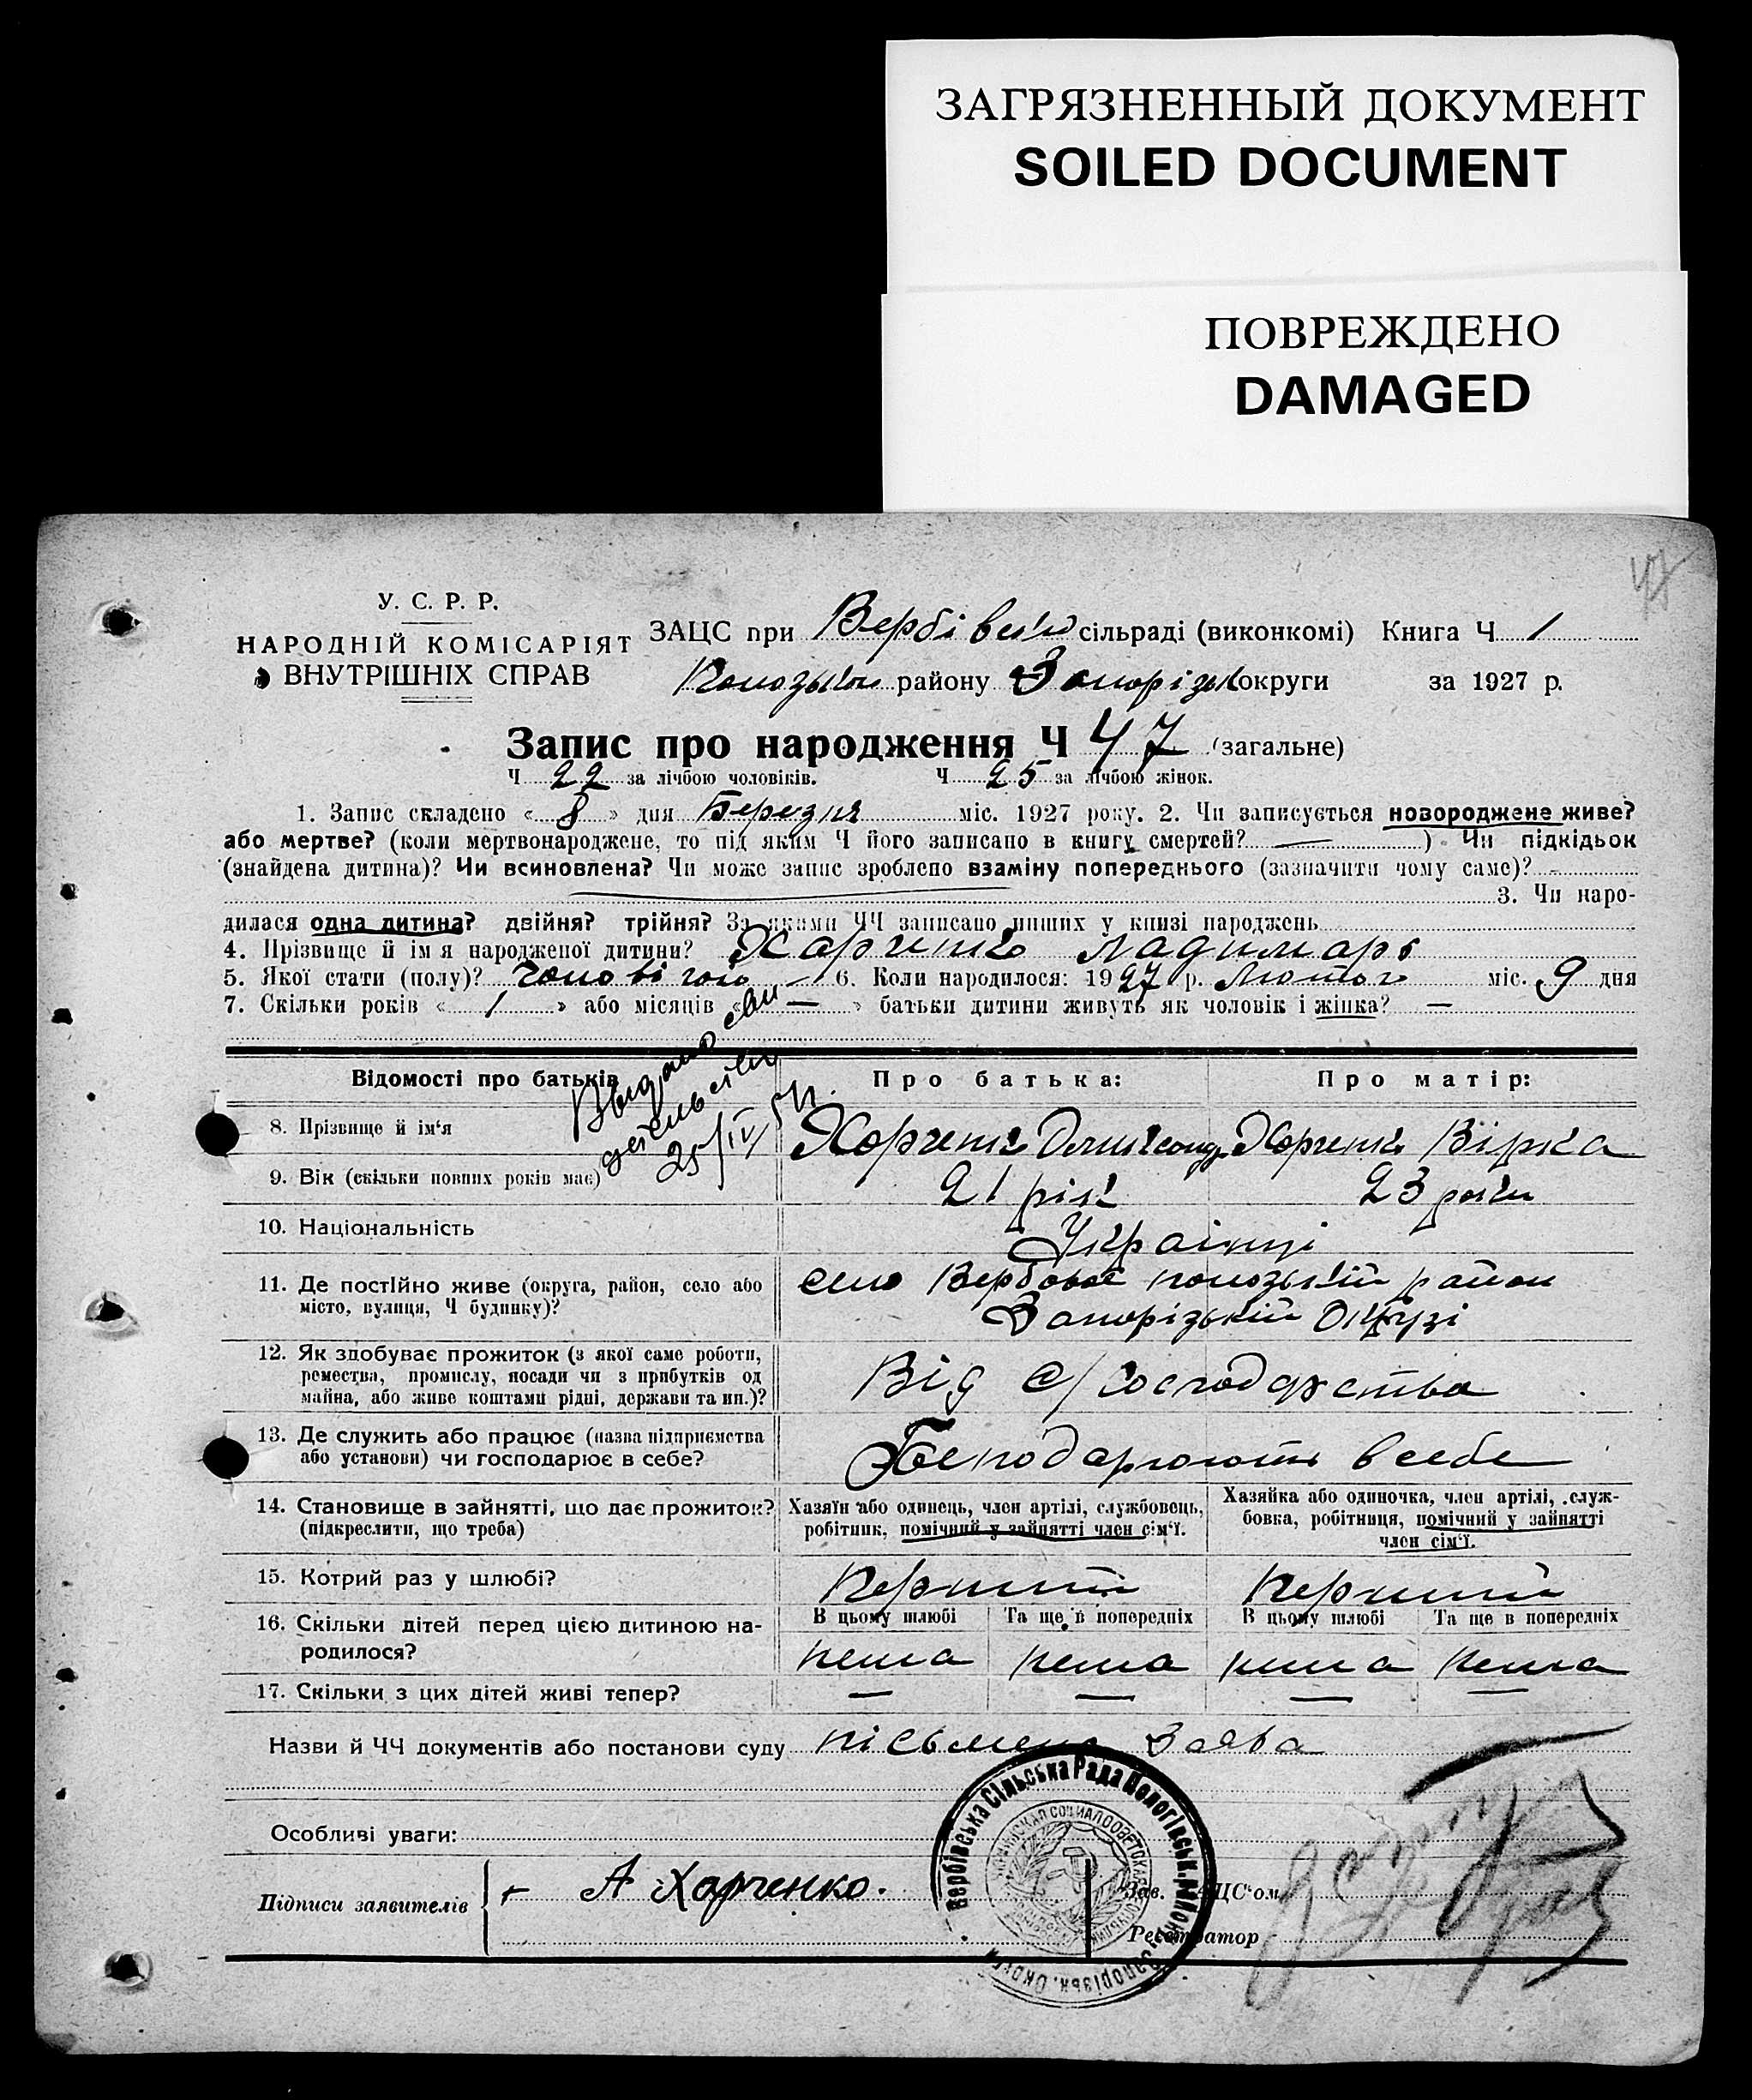 ЗАГРЯЗНЕННЫЙ ДОКУМЕНТ
SOILED DOCUMENT
ПОВРЕЖДЕНО
DAMAGED
47
У. С. Р. Р.
НАРОДНІЙ КОМІСАРІЯТ
ВНУТРІШНІХ СПРАВ
ЗАЦС при Вербівськ сільраді (виконкомі) Книга Ч 1
району Запорізьк округи за 1927 р.
Запис про народження Ч 47 (загальне)
Ч 22 за лічбою чоловіків. Ч 25 за лічбою жінок.
1. Запис складено « 8 » дня Березня міс. 1927 року. 2. Чи записується новороджене живе?
або мертве? (коли мертвонароджене, то під яким Ч його записано в книгу смертей? — ) Чи підкідьок
(знайдена дитина)? Чи всиновлена? Чи може запис зроблено взаміну попереднього (зазначити чому саме)?
3. Чи наро-
дилася одна дитина? двійня? трійня? За якими ЧЧ записано инших у книзі народжень
4. Прізвище й ім я народженої дитини? Харченко
5. Якої стати (полу)? 6. Коли народилося: 1927 р. Лютого міс. 9 дня
7. Скільки років « 1 » або місяців « — » батьки дитини живуть як чоловік і жінка? —
Відомості про батьків
Про батька:
Про матір:
Выдано сви
детельств
25/IV 51 г.
8. Прізвище й ім‘я Харченко Харченко Вірка
9. Вік (скільки повних років має) 21 рік 23 роки
10. Національність Українці
11. Де постійно живе (округа, район, село або село Вербове пологзькій район
місто, вулиця, Ч будинку)? Запорізькій Окрузі
12. Як здобуває прожиток (з якої саме роботи,
ремества, промислу, посади чи з прибутків од
майна, або живе коштами рідні, держави та ин.)? Від с/господарства
13. Де служить або працює (назва підприємства
або установи) чи господарює в себе? Господарюють в себе
14. Становище в зайнятті, що дає прожиток?
(підкреслити, що треба)
Хазяїн або одинець, член артілі, службовець,
робітник, помічний у зайнятті член сім‘ї.
Хазяйка або одиночка, член артілі, служ-
бовка, робітниця, помічний у зайнятті
член сім‘ї.
15. Котрий раз у шлюбі? Перший Перший
16. Скільки дітей перед цією дитиною на-
родилося?
В цьому шлюбі Та ще в попередніх В цьому шлюбі Та ще в попередніх
нема нема нема нема
17. Скільки з цих дітей живі тепер? — — — —
Назви й ЧЧ документів або постанови суду письмена Заява
Особливі уваги:
Підписи заявителів А Харченко.
Вербівська Сільська Рада Пологівськ. Району Запорізьк. Округи
Зав. ЗАЦС‘ом
Реєстратор